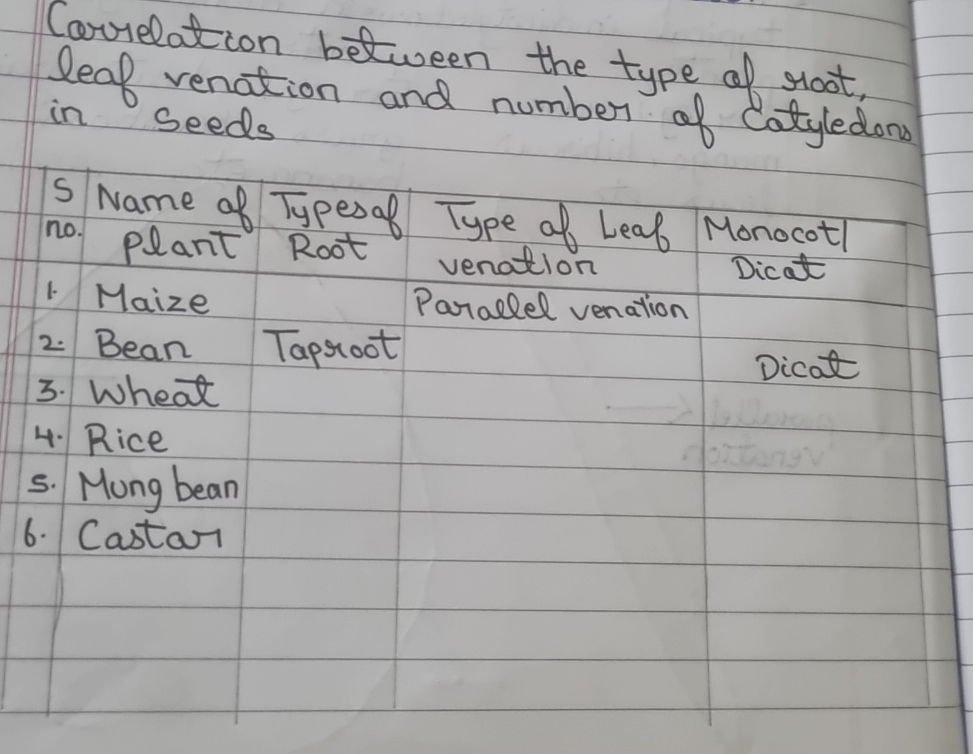 Correlation between the type of root,
leaf venation and number of Cotyledons
in seeds
S no. Name of Plant Types of Root Type of Leaf venation Monocot/ Dicot
1. Maize Parallel venation
2. Bean Taproot Dicot
3. Wheat
4. Rice
5. Mung bean
6. Castor
parallel ←
venation